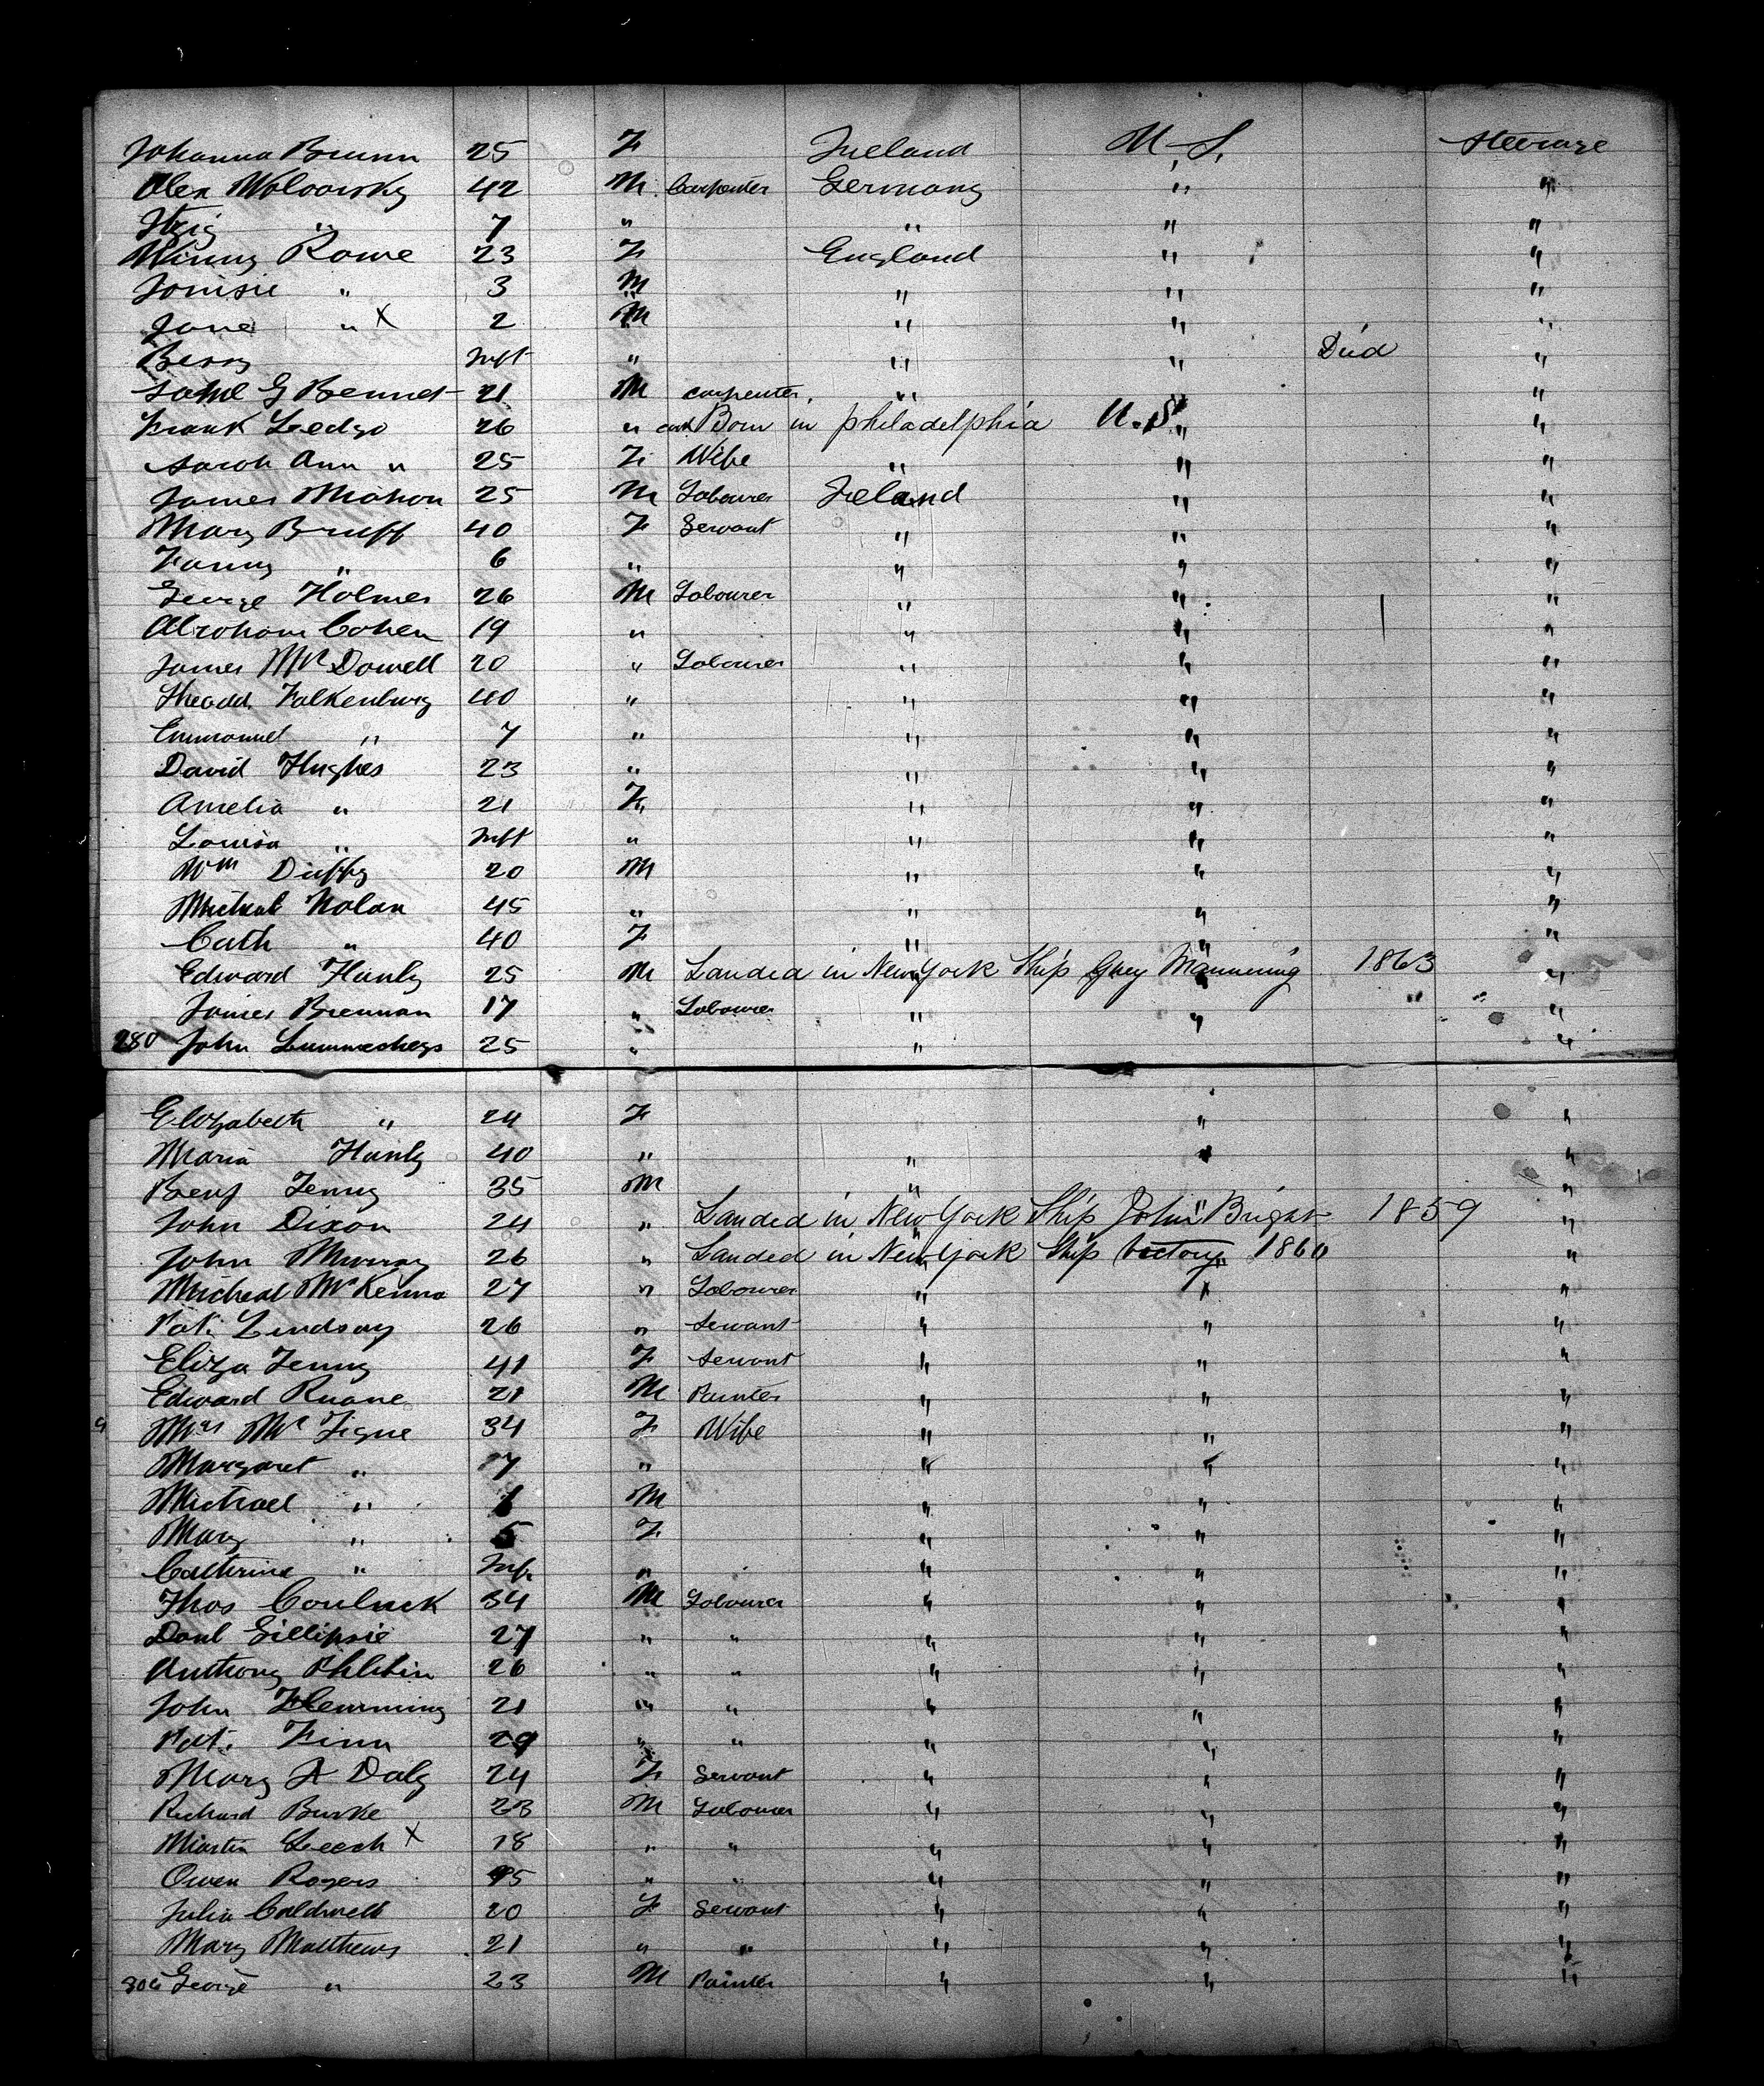 Johanna Brunn 25 F Ireland U.S. Steerage
Alex Woloosky 42 M Carpenter Germany " "
Itzig " 7 " " " "
Minny Rowe 23 F England " "
" 3 M " " "
Jane " X 2 M " " "
Bessy Inft " " " Died "
Saml G Bennet 21 M carpenter " " "
Frank Ledgo 26 " Born in philadelphia U.S. "
Sarah Ann " 25 F Wife " " "
James Mahon 25 M Labourer Ireland " "
Mary Bruff 40 F Servant " " "
Fanny " 6 " " " "
George Holmes 26 M Labourer " " "
Abraham Cohen 19 " " " "
James McDowell 20 " Labourer " " "
Theodd. Falkenburg 40 " " " "
Emmanuel " 7 " " " "
David Hughes 23 " " " "
Amelia " 21 F " " "
Louisa " Inft " " " "
Wm Duffy 20 M " " "
Michael Nolan 45 " " " "
Cath " 40 F " " "
Edward Hanly 25 M Landed in New York Ship Guy Mannering 1863 "
James Brennan 17 " Labourer " " "
280 John 25 " " "
Elizabeth " 24 F " "
Maria Hanly 40 " " " "
Benj Jenny 35 M " " "
John Dixon 24 " Landed in New York Ship John Bright 1859 "
John Murray 26 " Landed in New York Ship Victory 1860 "
Micheal McKenna 27 " Labourer " " "
Pat. Lindsay 26 " Servant " " "
Eliza Jenny 41 F Servant " " "
Edward Ruane 21 M Painter " " "
Mrs Mc Tigue 34 F Wife " " "
Margaret " 7 " " " "
Michael " M " " "
Mary " 5 F " " "
Cathrine " Inft " " " "
Thos 34 M Labourer " " "
Danl Gillipsie 27 " " " " "
Anthony Philbin 26 " " " " "
John Flemming 21 " " " " "
Pat. Finn 29 " " " " "
Mary A Daly 24 F Servant " " "
Richard Burke 23 M Labourer " " "
Martin Leech X 18 " " " " "
Owen Rogers " " " " "
Julia Caldwell 20 F Servant " " "
Mary Matthews 21 " " " " "
306 George " 23 M Painter " " "